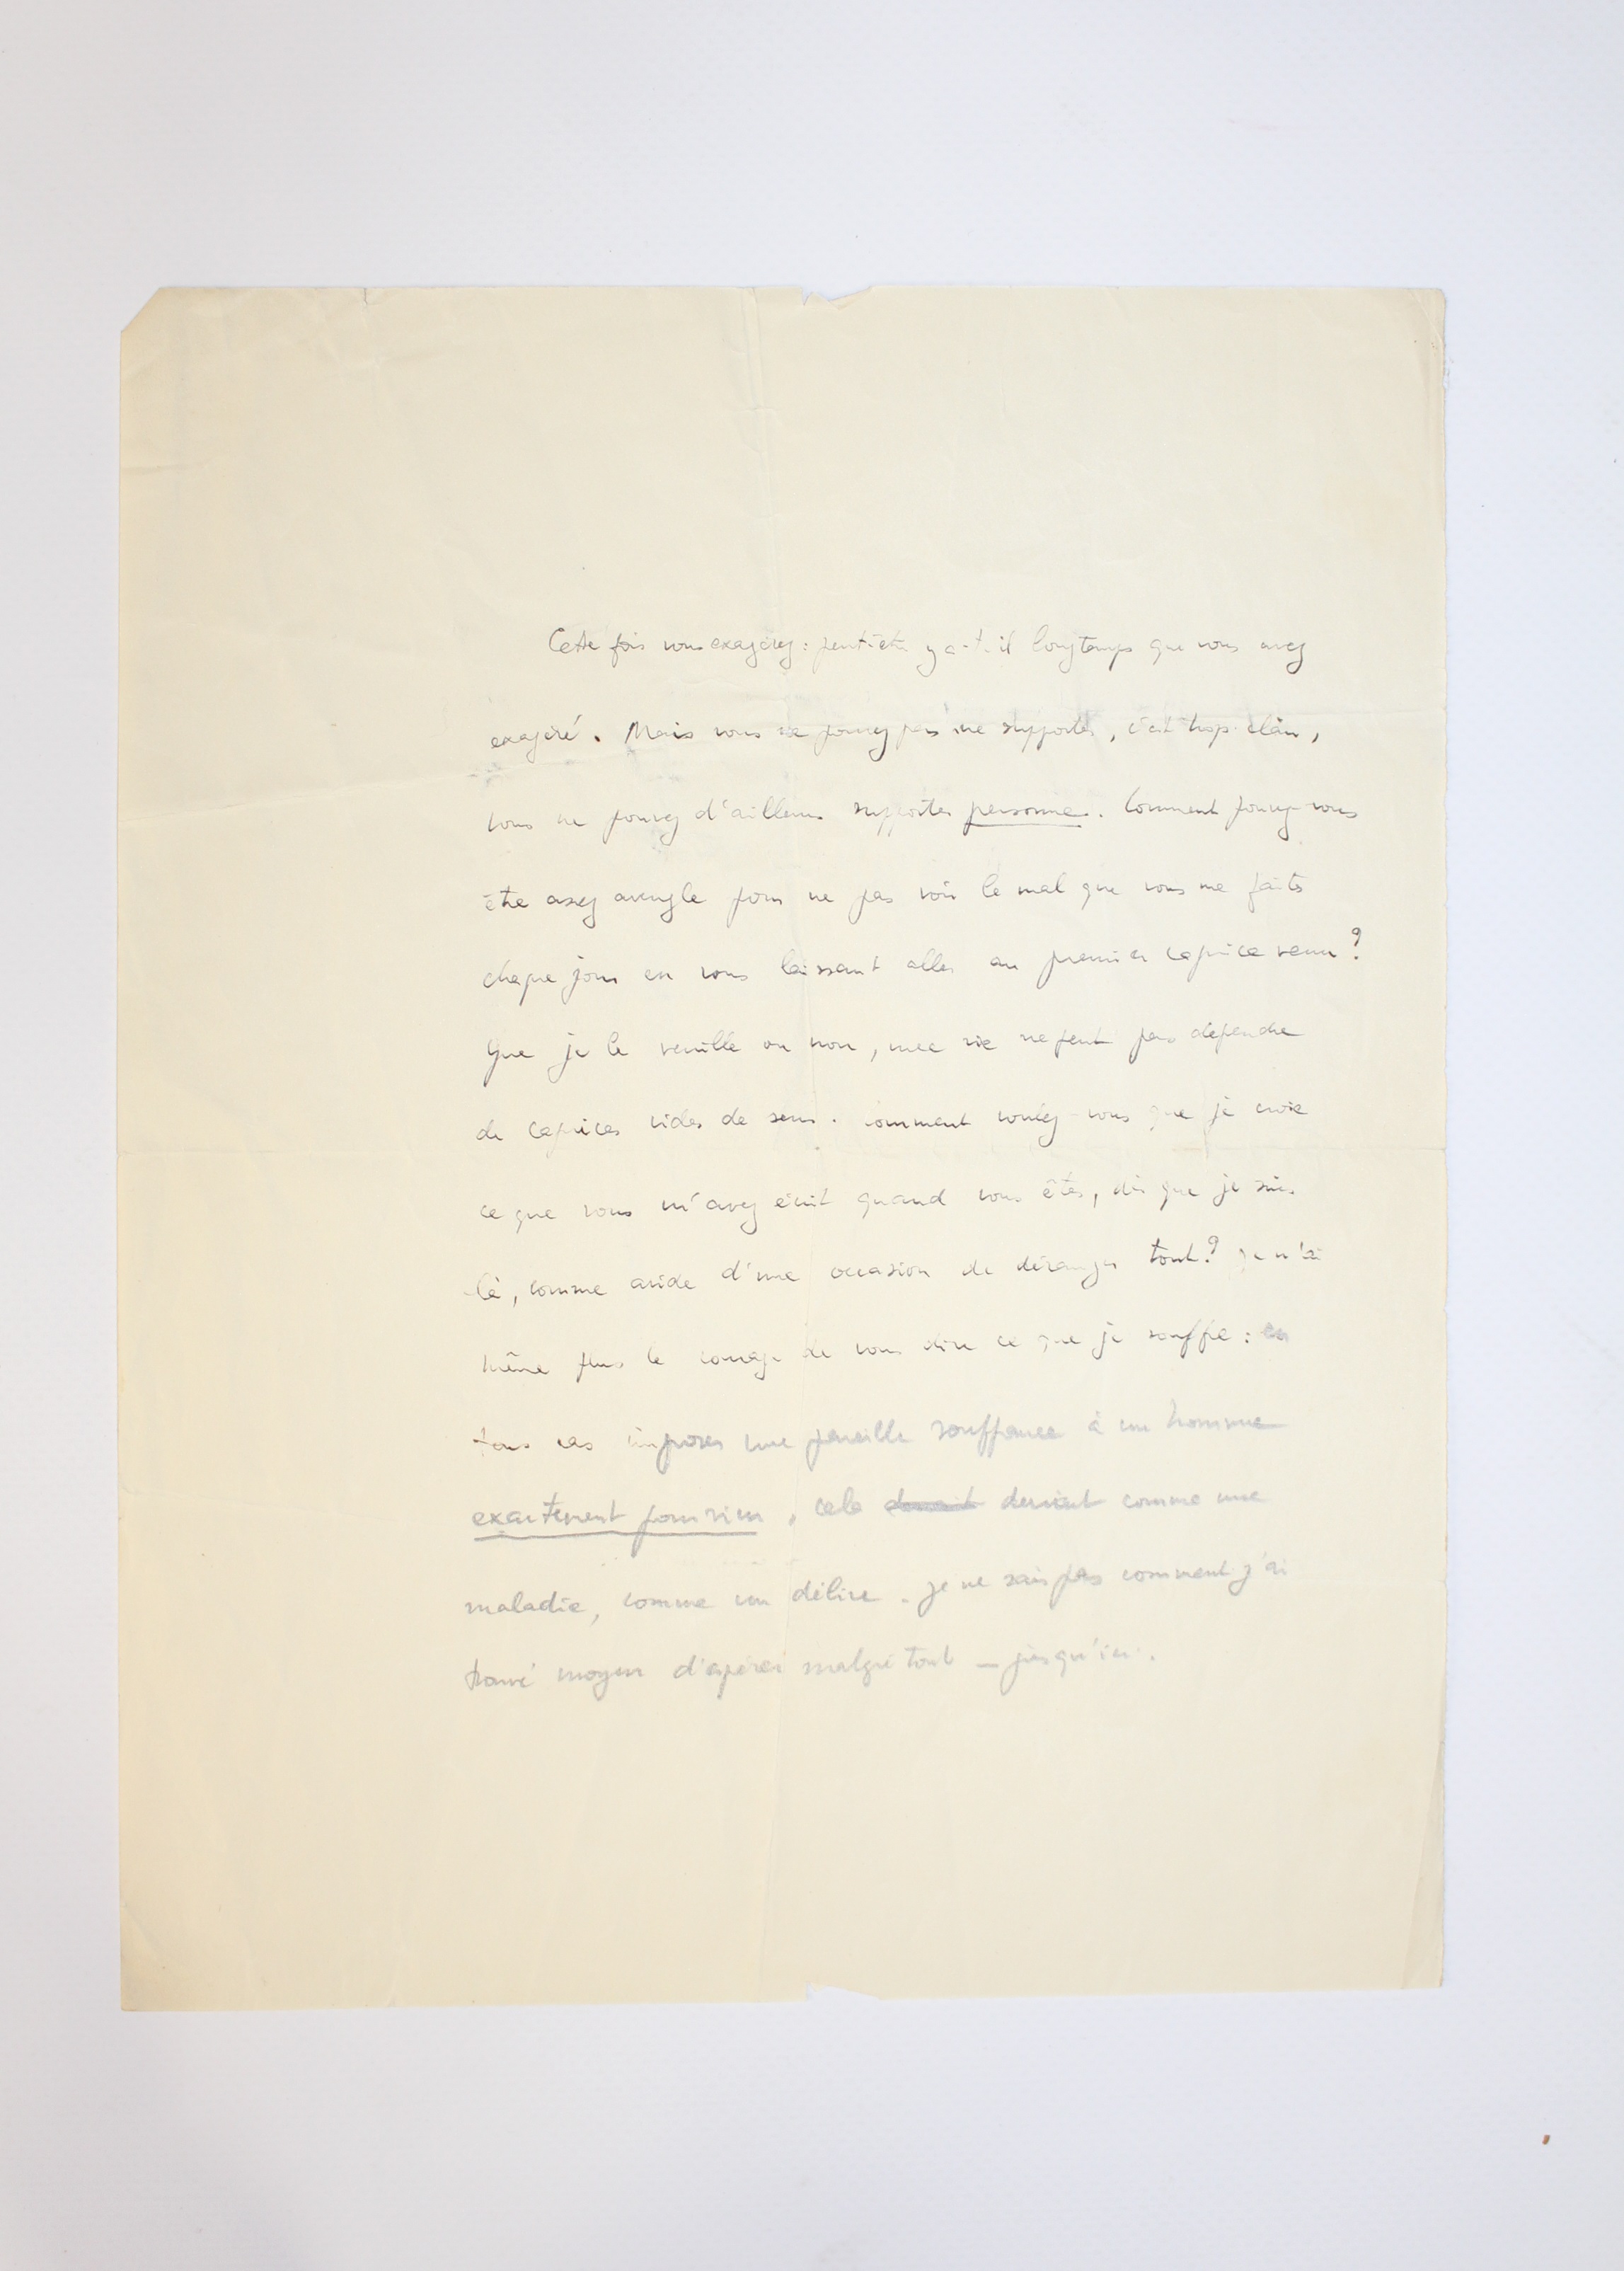 Cette fois vous exagérez : peut-être y a-t-il longtemps que vous avez
exagéré. Mais vous ne pouvez pas me supporter, c'est trop clair,
vous ne pouvez d'ailleurs supporter personne. Comment pouvez-vous
être assez aveugle pour ne pas voir le mal que vous me faites
chaque jour en vous laissant aller au premier caprice venu ?
Que je le veuille ou non, une vie ne peut pas dépendre
de caprices vides de sens. Comment voulez-vous que je croie
ce que vous m'avez écrit quand vous êtes, dès que je suis
là, comme avide d'une occasion de déranger tout ? Je n'ai
même plus le courage de vous dire ce que je souffre : en
tous cas imposer une pareille souffrance à un homme
exactement pour rien, cela devient comme une
maladie, comme un délire. Je ne sais pas comment j'ai
trouvé moyen d'espérer malgré tout — jusqu'ici.